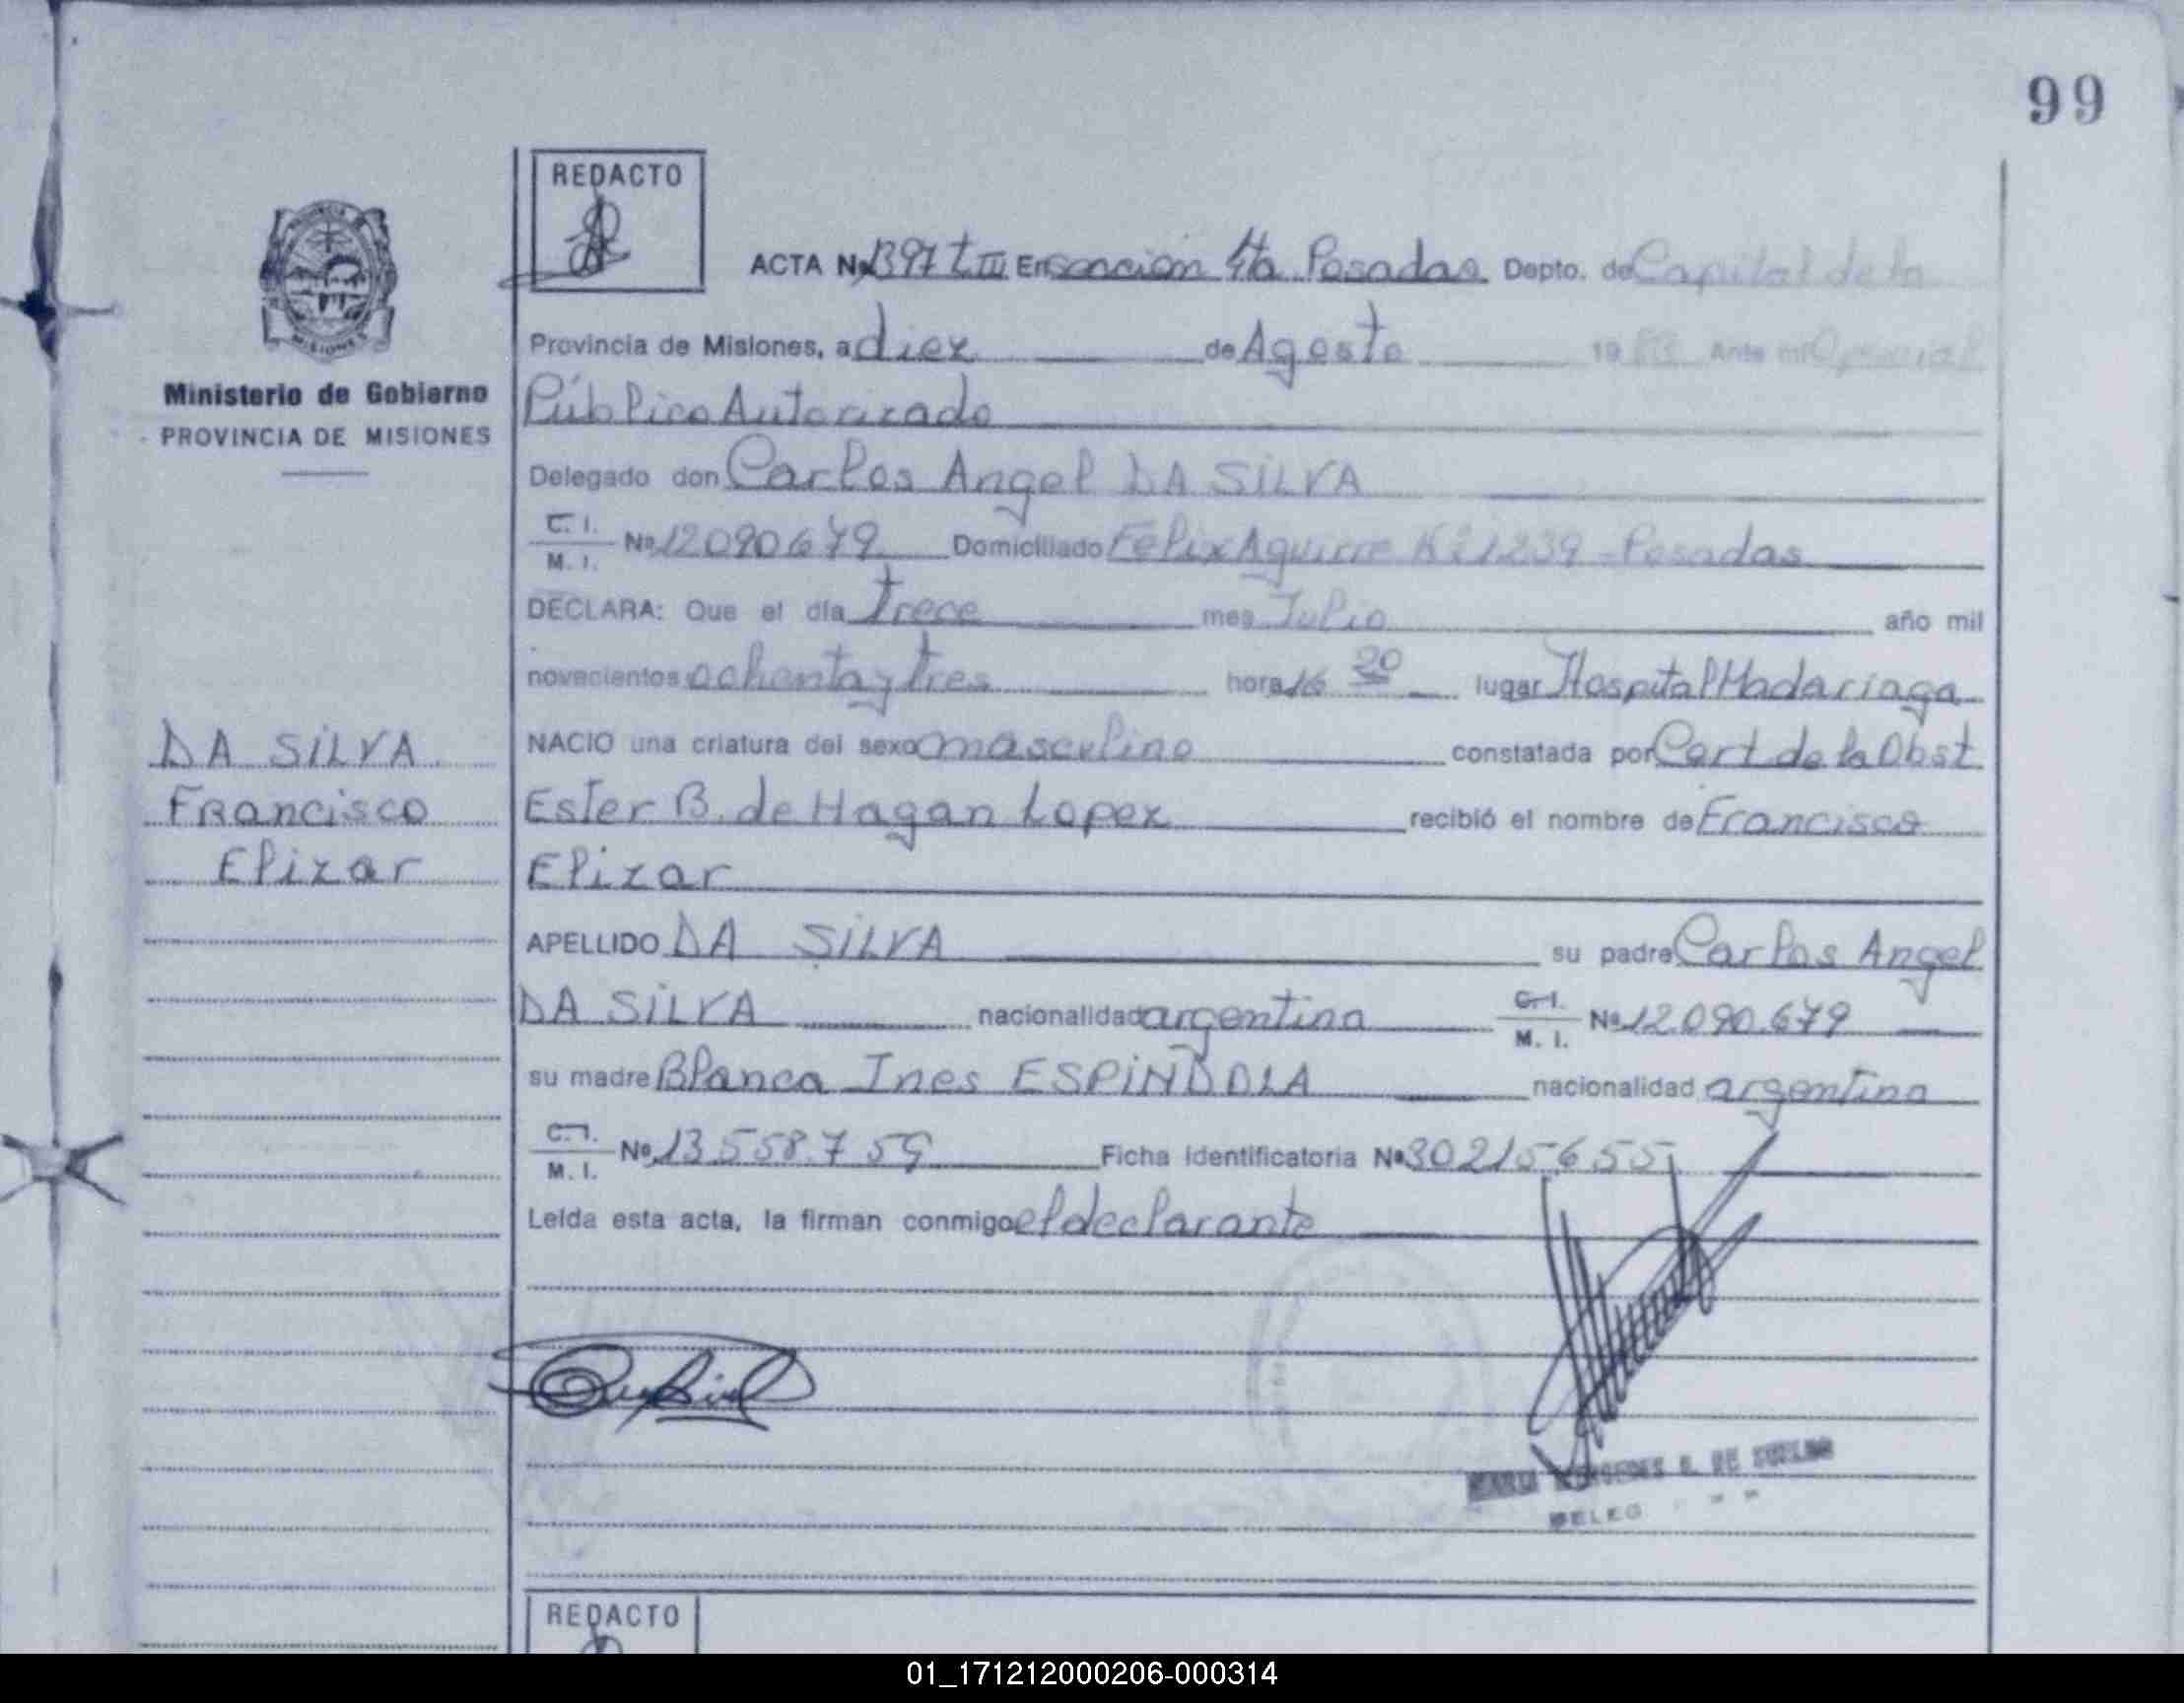 99
REDACTO
ACTA Nº 1397 t III En sección 4ta Posadas Depto. de Capital de la
Provincia de Misiones, a diez de Agosto 1983 Ante mí Oficial
Público Autorizado
Delegado don Carlos Angel DA SILVA
C. I.
M. I. Nº 12090679 Domiciliado Felix Aguirre 1239 - Posadas
DECLARA: Que el día trece mes Julio año mil
novecientos ochenta y tres hora 16 20 lugar Hospital Madariaga
NACIO una criatura del sexo masculino constatada por Cert de la Obst
Ester B. de Hagan Lopez recibió el nombre de Francisco
Elizar
APELLIDO DA SILVA su padre Carlos Angel
DA SILVA nacionalidad argentina C. I.
M. I. Nº 12.090.679
su madre Blanca Ines ESPINDOLA nacionalidad argentina
C. I.
M. I. Nº 13.558.759 Ficha identificatoria Nº 30215655
Leída esta acta, la firman conmigo el declarante
Ministerio de Gobierno
PROVINCIA DE MISIONES
DA SILVA
Francisco
Elizar
REDACTO
01_171212000206-000314